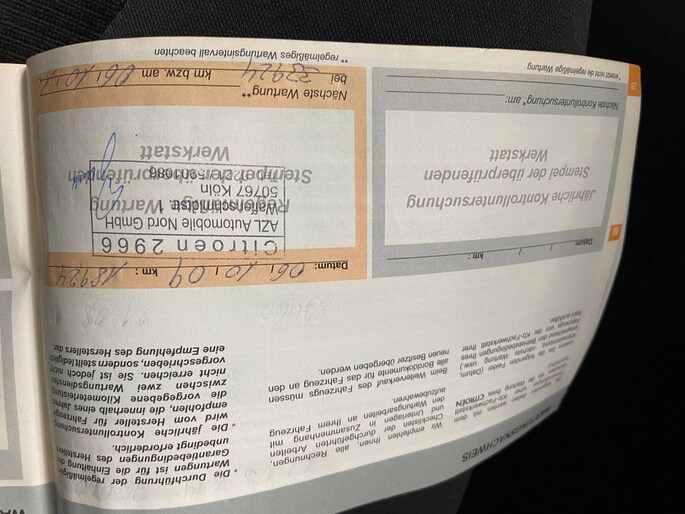 WARTUNGSNACHWEIS
* Die Durchführung der regelmäßigen
Wartungen ist für die Einhaltung der
Garantiebedingungen des Herstellers
unbedingt erforderlich.
* Die jährliche Kontrolluntersuchung
wird vom Hersteller für Fahrzeuge
empfohlen, die innerhalb eines Jahres
die vorgegebene Kilometerleistung
zwischen zwei Wartungsdiensten
nicht erreichen. Sie ist jedoch nicht
vorgeschrieben, sondern stellt lediglich
eine Empfehlung des Herstellers dar.
Wir empfehlen Ihnen, alle Rechnungen,
Checklisten der durchgeführten Arbeiten
und Unterlagen in Zusammenhang mit
den Wartungsarbeiten an Ihrem Fahrzeug
aufzubewahren.
Beim Weiterverkauf des Fahrzeugs müssen
alle Borddokumente für das Fahrzeug an den
neuen Besitzer übergeben werden.
CITROËN
Datum: 06 10 09 km: 18924
Regelmäßige Wartung
Stempel der überprüfenden
Werkstatt
Citroen 2966
AZL Automobile Nord GmbH
Waffenschmidtstr. 1
50767 Köln
Nächste Wartung**
bei 33924 km bzw. am 06 10
** regelmäßiges Wartungsintervall beachten
Datum: km:
Jährliche Kontrolluntersuchung
Stempel der überprüfenden
Werkstatt
Nächste Kontrolluntersuchung* am:
* ersetzt nicht die regelmäßige Wartung